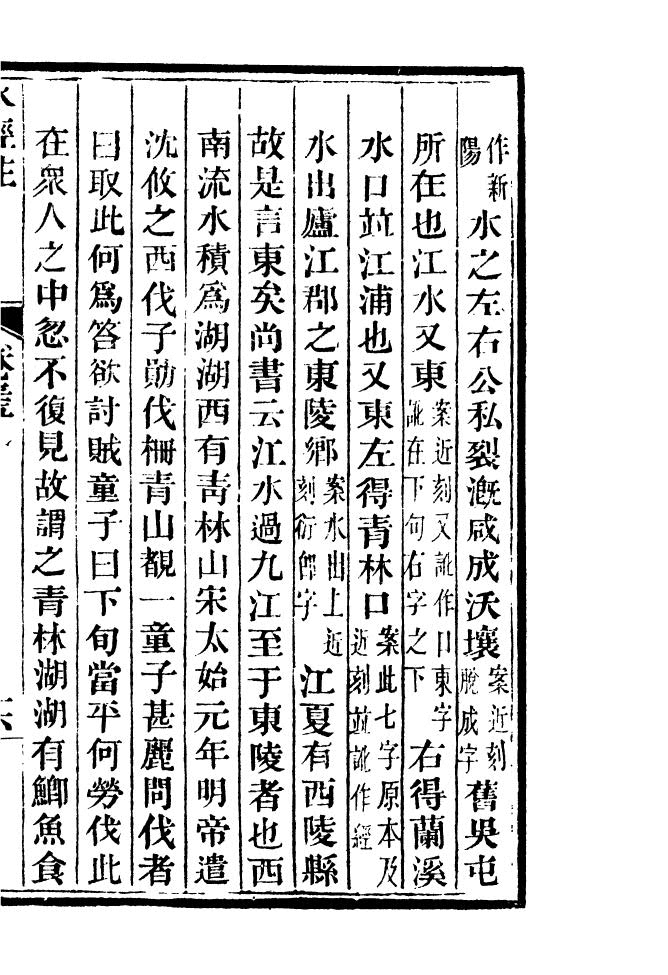 作新陽水之左右公私裂溉咸成沃壤案近刻脫成字舊吳屯
所在也江水又東案近刻又訛作口東字訛在下句右字之下右得蘭溪
水口竝江浦也又東左得青林口案此七字原本及近刻竝訛作經
水出廬江郡之東陵鄉案水出上近刻衍鄉字江夏有西陵縣
故是言東矣尚書云江水過九江至于東陵者也西
南流水積爲湖湖西有青林山宋太始元年明帝遣
沈攸之西伐子勛伐柵青山覩一童子甚麗問伐者
曰取此何爲答欲討賊童子曰下旬當平何勞伐此
在衆人之中忽不復見故謂之青林湖湖有鯽魚食
水經注